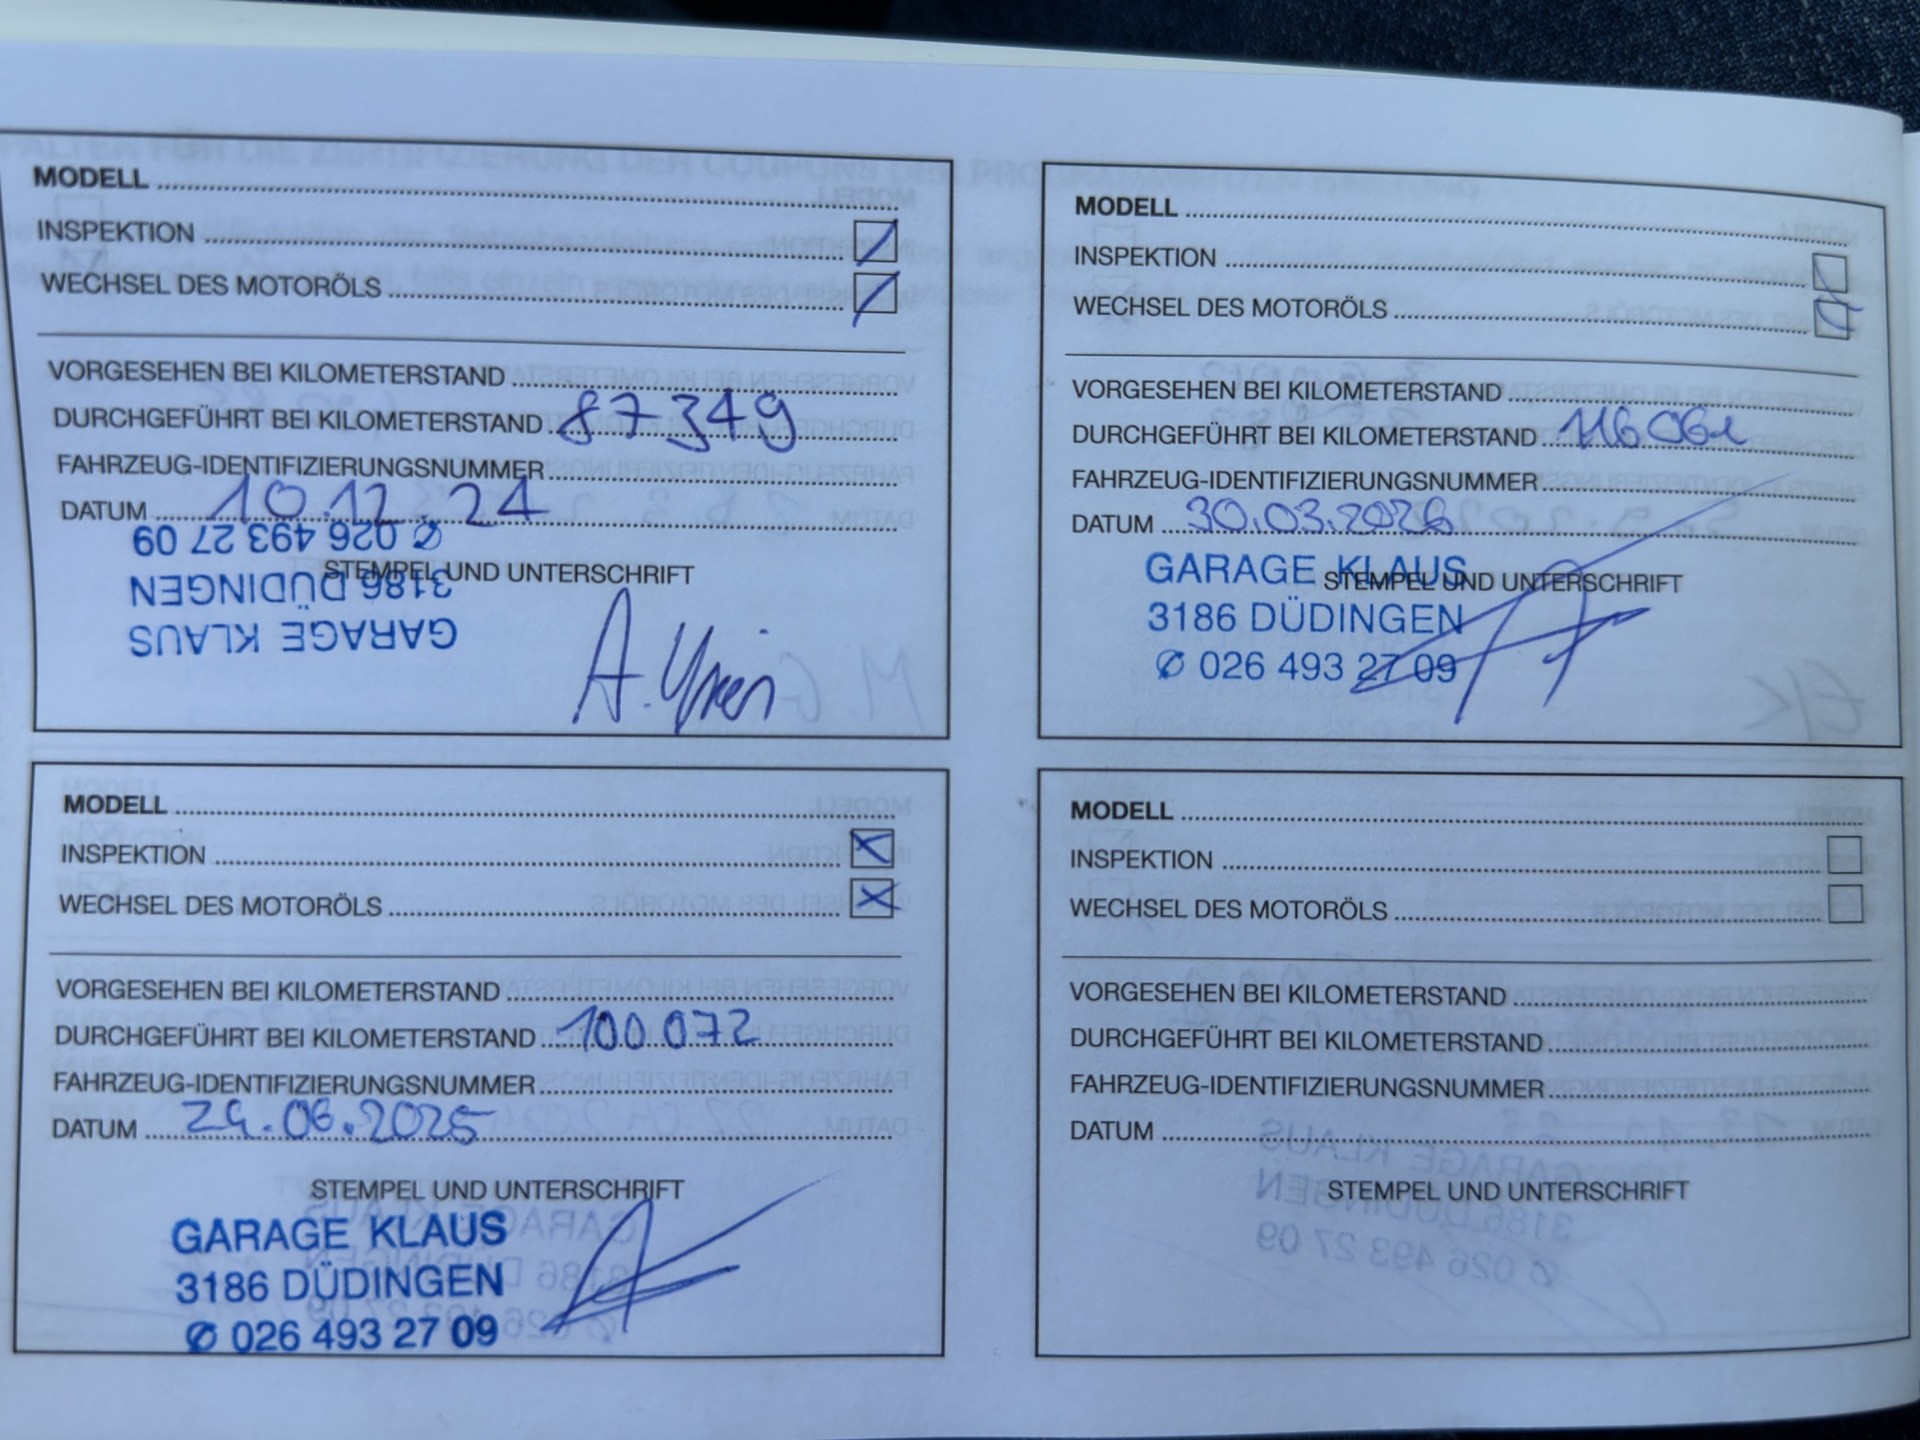 MODELL
INSPEKTION
WECHSEL DES MOTORÖLS
VORGESEHEN BEI KILOMETERSTAND
DURCHGEFÜHRT BEI KILOMETERSTAND 87349
FAHRZEUG-IDENTIFIZIERUNGSNUMMER
DATUM 10.12.24
STEMPEL UND UNTERSCHRIFT
GARAGE KLAUS
3186 DÜDINGEN
✆ 026 493 27 09
MODELL
INSPEKTION
WECHSEL DES MOTORÖLS
VORGESEHEN BEI KILOMETERSTAND
DURCHGEFÜHRT BEI KILOMETERSTAND
FAHRZEUG-IDENTIFIZIERUNGSNUMMER
DATUM 30.03.2026
STEMPEL UND UNTERSCHRIFT
GARAGE KLAUS
3186 DÜDINGEN
✆ 026 493 27 09
MODELL
INSPEKTION
WECHSEL DES MOTORÖLS
VORGESEHEN BEI KILOMETERSTAND
DURCHGEFÜHRT BEI KILOMETERSTAND 100072
FAHRZEUG-IDENTIFIZIERUNGSNUMMER
DATUM 24.06.2025
STEMPEL UND UNTERSCHRIFT
GARAGE KLAUS
3186 DÜDINGEN
✆ 026 493 27 09
MODELL
INSPEKTION
WECHSEL DES MOTORÖLS
VORGESEHEN BEI KILOMETERSTAND
DURCHGEFÜHRT BEI KILOMETERSTAND
FAHRZEUG-IDENTIFIZIERUNGSNUMMER
DATUM
STEMPEL UND UNTERSCHRIFT